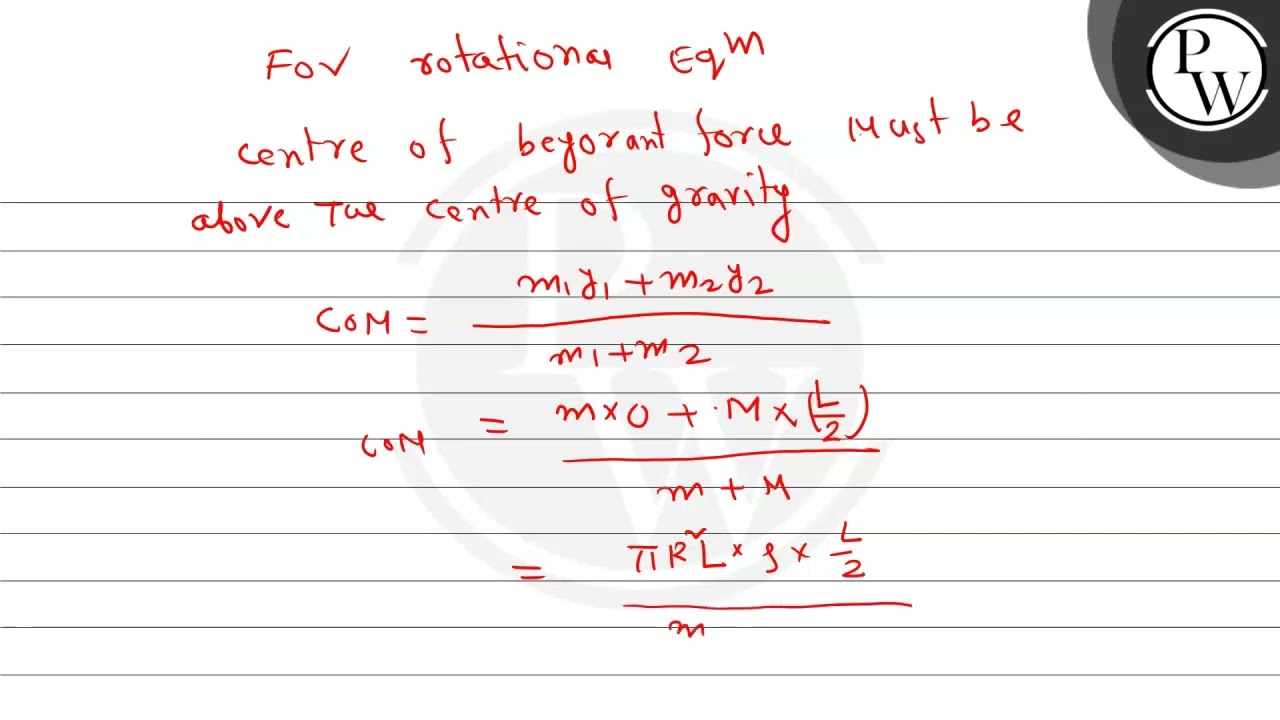 PW
For rotational Eqm
centre of beyorant force Must be
above The centre of gravity
COM = m₁y₁ + m₂y₂ / m₁ + m₂
COM = m × 0 + M × (L/2) / m + M
= πR²L × ρ × L/2 / m